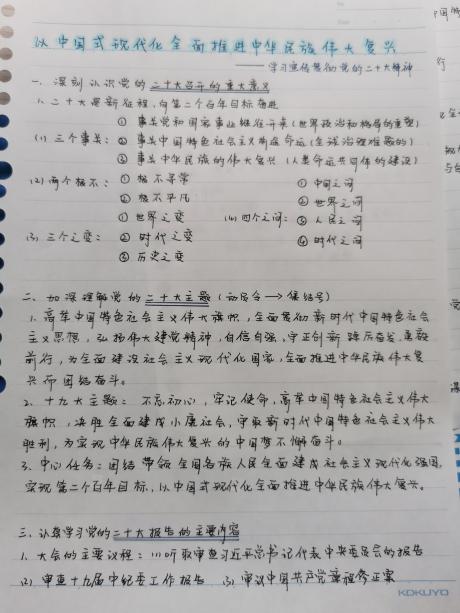 以中国式现代化全面推进中华民族伟大复兴
——学习宣传贯彻党的二十大精神
一、深刻认识党的二十大召开的重大意义
1.二十大是新征程,向第二个百年目标奋进
① 事关党和国家事业继往开来(世界政治和格局的重塑)
(1) 三个事关: ② 事关中国特色社会主义前途命运(全球治理难题的)
③ 事关中华民族的伟大复兴(人类命运共同体的建设)
(2) 两个极不: ① 极不寻常 ① 中国之问
② 极不平凡 ② 世界之问
① 世界之变 (4) 四个之问: ③ 人民之问
(3) 三个之变: ② 时代之变 ④ 时代之问
③ 历史之变
二、加深理解党的二十大主题(动员令→集结号)
1.高举中国特色社会主义伟大旗帜,全面贯彻新时代中国特色社会
主义思想,弘扬伟大建党精神,自信自强、守正创新 踔厉奋发、勇毅
前行,为全面建设社会主义现代化国家,全面推进中华民族伟大复
兴而团结奋斗。
2、十九大主题:不忘初心,牢记使命,高举中国特色社会主义伟大
旗帜,决胜全面建成小康社会,夺取新时代中国特色社会主义伟大
胜利,为实现中华民族伟大复兴的中国梦不懈奋斗。
3.中心任务:团结带领全国各族人民全面建成社会主义现代化强国,
实现第二个百年目标,以中国式现代化全面推进中华民族伟大复兴。
三、认真学习党的二十大报告的主要内容
1、大会的主要议程:(1)听取审查习近平总书记代表中央委员会的报告
(2) 审查十九届中纪委工作报告 (3) 审议中国共产党章程修正案
KOKUYO